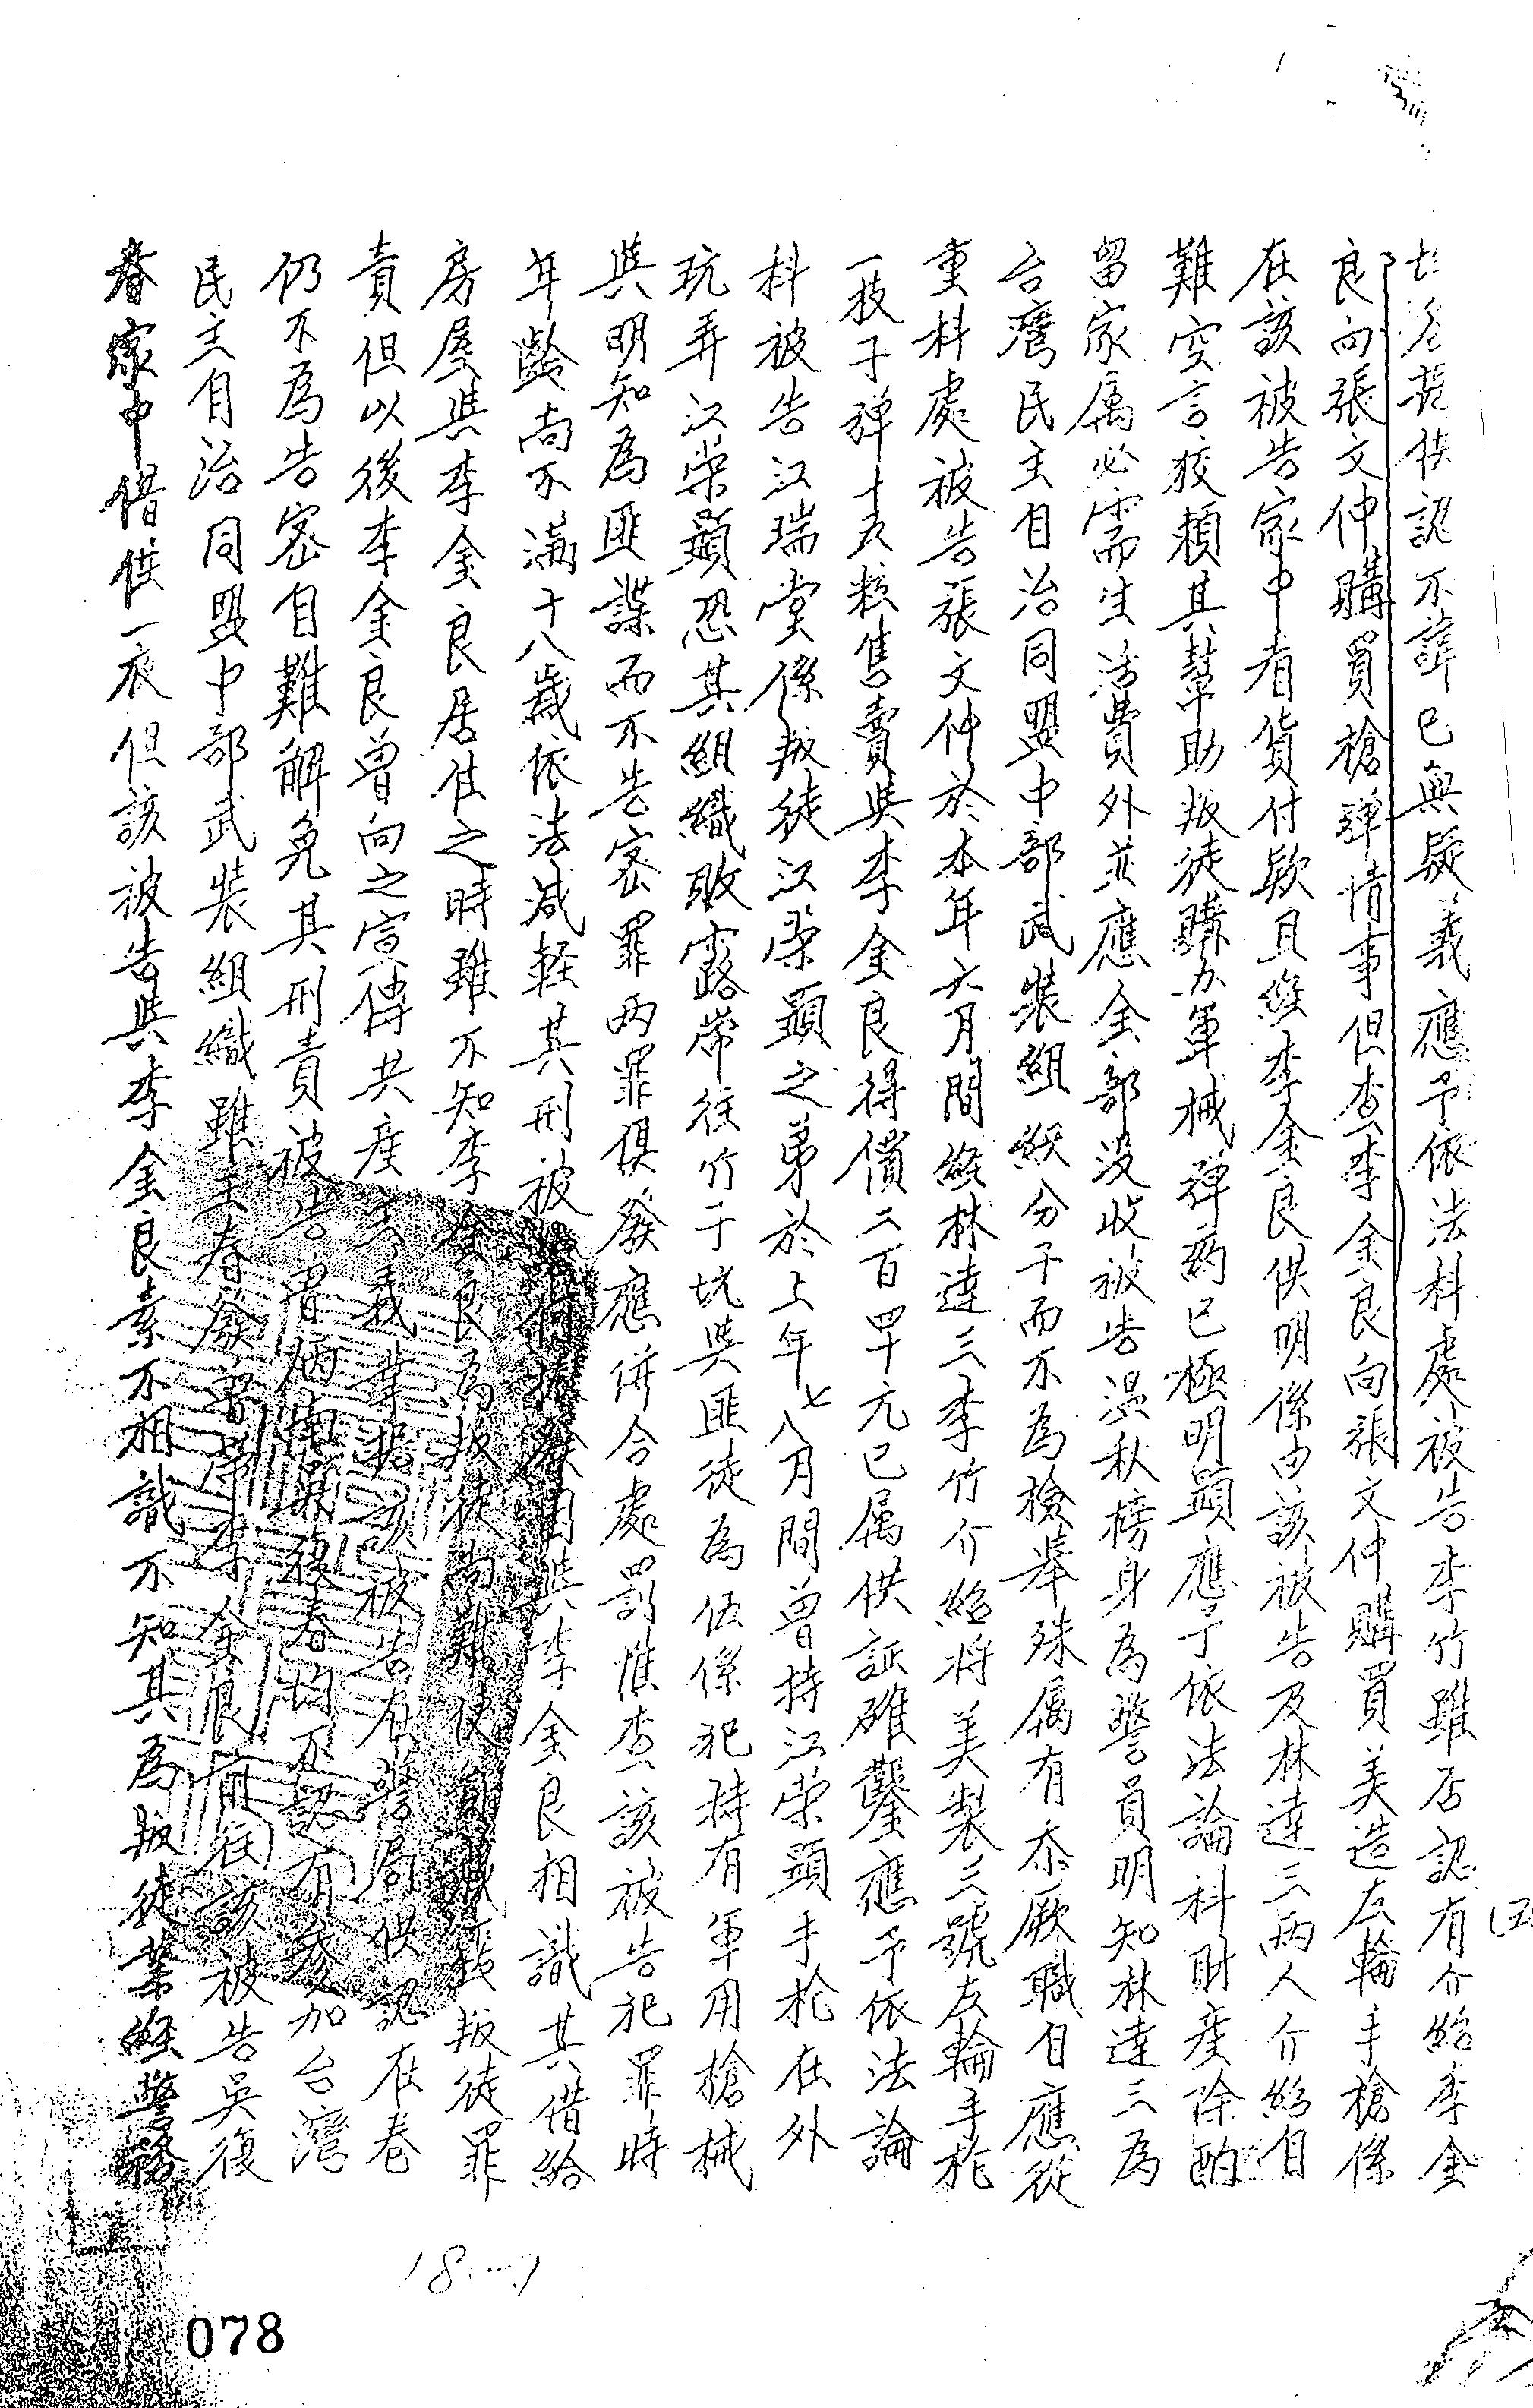 供認不諱已無疑義應予依法科處被告李竹雖否認有介紹李金
良向張文仲購買槍彈情事但查李金良向張文仲購買美造左輪手槍係
在該被告家中看貨付款且經李金良供明係由該被告及林達三兩人介紹自
難空言狡賴其幫助叛徒購办軍械彈药已極明顯應予依法論科財產除酌
留家屬必需生活費外並應全部没收被告温秋榜身為警員明知林達三為
台灣民主自治同盟中部武裝組織分子而不為檢舉殊属有忝厥職自應從
重科處被告張文仲於本年六月間經林達三李竹介紹將美製三號左輪手枪
一枝子弹十五粒售賣與李金良得價二百四十元已属供証確鑿應予依法論
科被告江瑞堂係叛徒江榮顯之弟於上年七八月間曾持江荣顕手枪在外
玩弄江榮顯恐其組織敗露帶往竹子坑與匪徒為伍係犯持有軍用槍械
與明知為匪諜而不告密罪两罪俱發應併合處罰惟查該被告犯罪時
年齡尚不滿十八歲依法减軽其刑被與李金良相識其借給
房屋與李金良居住之時雖不知李金良為叛徒尚難使負叛徒罪
責但以後李金良曾向之宣傳共產主義業据该被告在警局供認在卷
仍不為告密自難解免其刑責被告復春均不認有參加台灣
民主自治同盟中部武裝組織雖王春發曾帶李金良前往該被告吳復
春家中借住一夜但該被告與李金良素不相識不知其為叛徒業經警務
18.-1
078